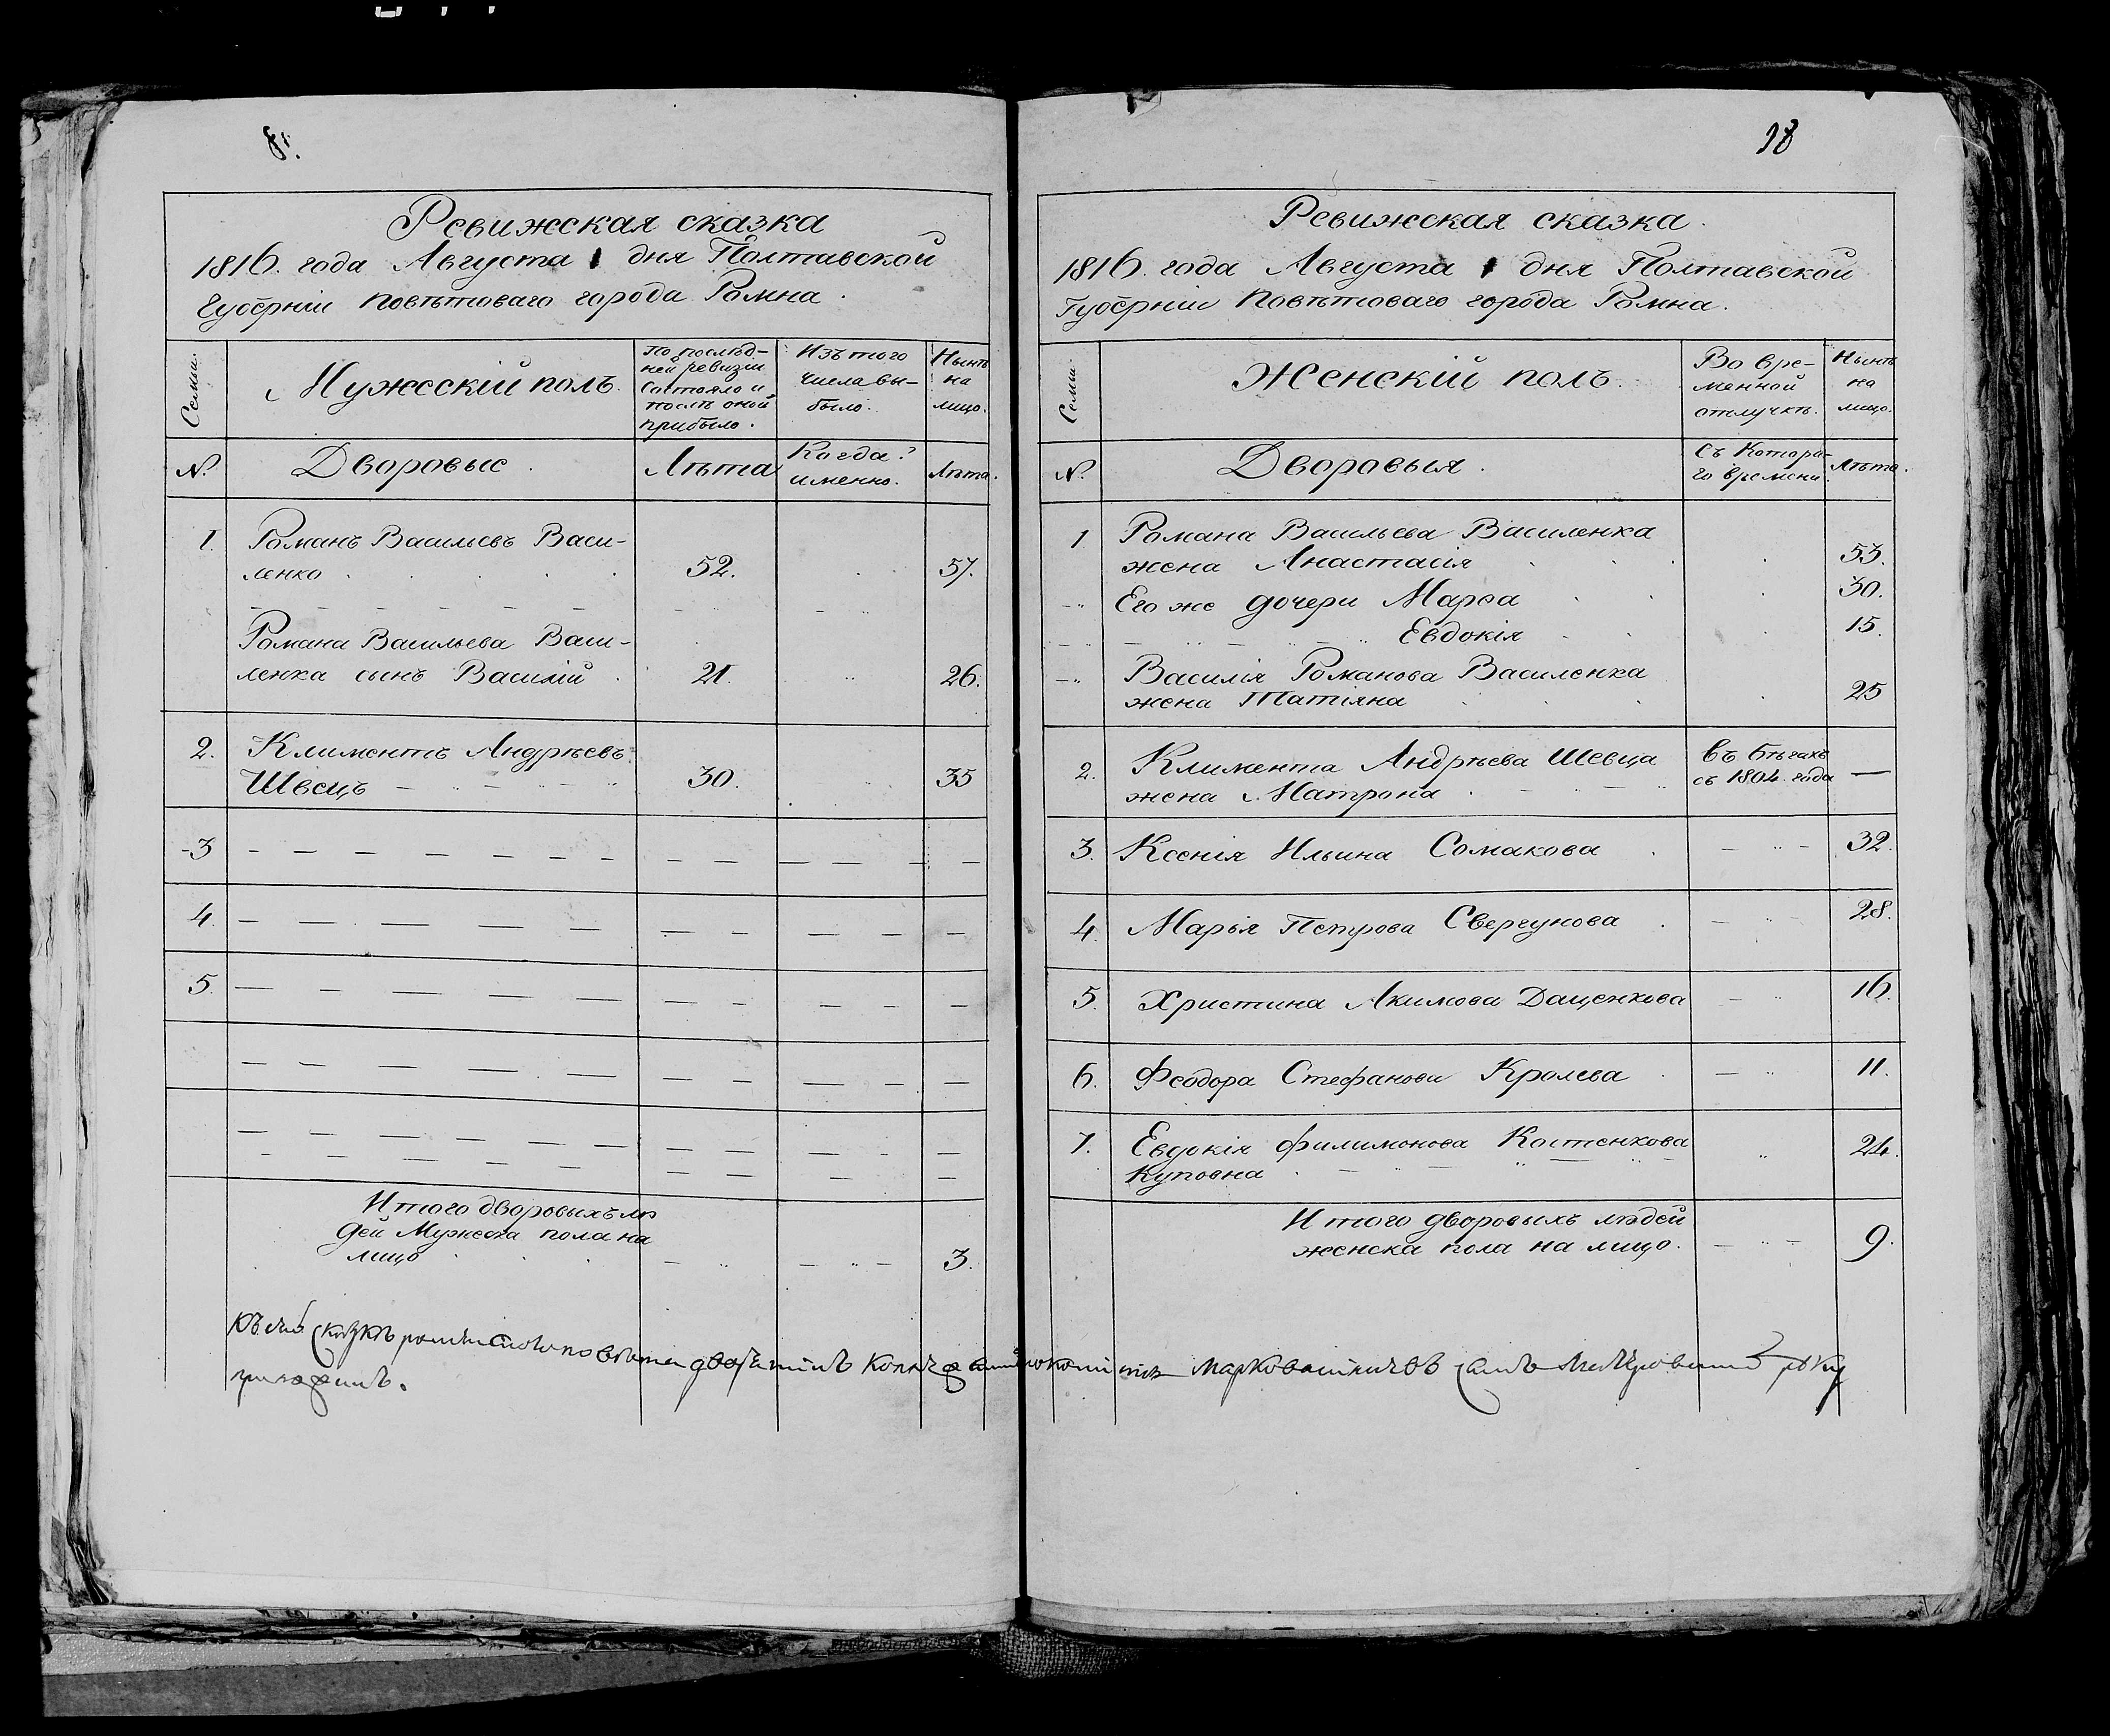 8.
Ревижская сказка
1816. года Августа 1 дня Полтавской
Губерніи повѣтоваго города Ромна.
Семьи.
Мужескій полъ.
По послѣд-
ней ревизіи
состояло и
послѣ оной
прибыло.
Изъ того
числа вы-
было.
Нынѣ
на
лицо.
№.
Дворовые.
Лѣта
Когда?
именно.
Лѣта.
1. Романъ Васильевъ Васи-
ленко 52. 57.
Романа Васильева Васи-
ленка сынъ Василій 21. 26.
2. Климентъ Андрѣевъ
Швецъ 30. 35
3
4.
5.
Итого дворовыхъ лю
дей Мужеска пола на
лицо 3.
18
Ревижская сказка.
1816. года Августа 1 дня Полтавской
Губерніи Повѣтоваго города Ромна.
Семьи.
Женскій полъ.
Во вре-
менной
отлучкѣ.
Нынѣ
на
лицо.
№.
Дворовыя.
Съ Котора-
го времени.
Лѣта.
1 Романа Васильева Василенка
жена Анастасія 53.
Его же дочери Марѳа 30.
Евдокія 15.
Василія Романова Василенка
жена Татіяна 25
2. Климента Андрѣева Шевца
жена Матрона
въ бѣгахъ
съ 1804. года —
3. Ксенія Ильина Сомакова 32.
4. Марья Петрова Свергунова 28.
5. Христина Акимова Даценкова 16.
6. Феодора Стефанова Кролева 11.
7. Евдокія Филимонова Костенкова 24.
Куповна
Итого дворовыхъ людей
женска пола на лицо. 9.
Къ сей сказкѣ повѣта
руку